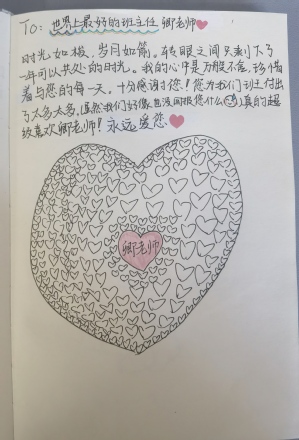 TO: 世界上最好的班主任 卿老师
时光如梭，岁月如箭。转眼之间只剩下了
一年可以共处的时光。我的心中是万般不舍，珍惜
着与您的每一天。十分感谢您！您为我们班付出
了太多太多，虽然我们好像也没回报您什么，真的超
级喜欢卿老师！永远爱您
卿老师